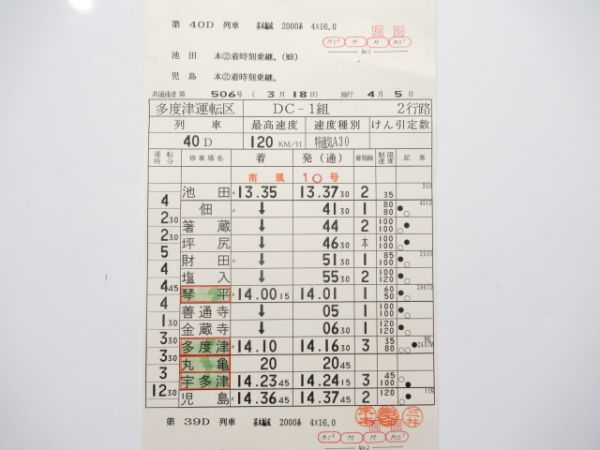 第 40D 列車 基本編成 2000系 4×16.0
MC2 M M MC1
No2
池田 本②着時刻乗継。
児島 本②着時刻乗継。
共通速達 第 506号 (3月18日) 施行 4月5日
多度津運転区 DC-1組 2行路
列車 最高速度 速度種別 けん引定数
40D 120 KM/H 特通気A30
運転時分 停車場名 着 発(通) 着発線 制限速度 記事
南風 10号
池田 13.35 13.37 30 2 35
4
佃 ↓ 41 30 1 80 80
2 30
箸蔵 ↓ 44 2 100 100
2 30
坪尻 ↓ 46 30 本 100 100
5
財田 ↓ 51 30 1 85 100
4
塩入 ↓ 55 30 2 100 120
4 45
琴平 14.00 15 14.01 1 60 50
4
善通寺 ↓ 05 1 100 100
1 30
金蔵寺 ↓ 06 30 1 120 120
3 30
多度津 14.10 14.16 30 3 35 80
3 30
丸亀 20 20 45
3
宇多津 14.23 45 14.24 15 3 45 100
12 30
児島 14.36 45 14.37 45 2 120 11M
第 39D 列車 基本編成 2000系 4×16.0
MC2 M M MC1
No2